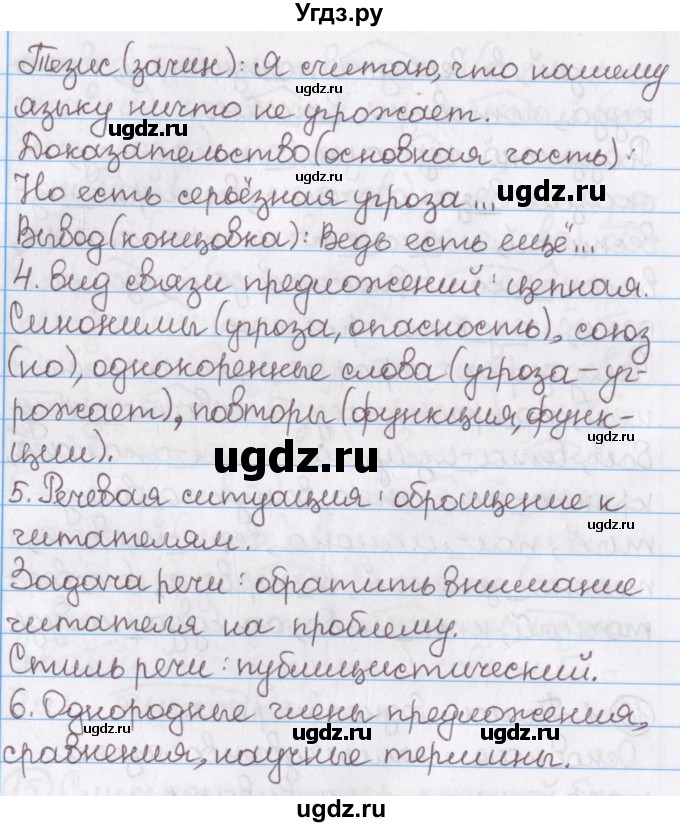 Угдз.ру
Тезис (зачин): Я считаю, что нашему
языку ничто не угрожает.
ugdz.ru
ugdz.ru
Доказательство (основная часть):
Но есть серьёзная угроза...
ugdz.ru
Вывод (концовка): Ведь есть ещё...
4. Вид связи предложений: цепная.
ugdz.ru
ugdz.ru
Синонимы (угроза, опасность), союз
(но), однокоренные слова (угроза – уг-
рожает), повторы (функция, функ-
ugdz.ru
ции).
ugdz.ru
5. Речевая ситуация: обращение к
ugdz.ru
читателям.
Задача речи: обратить внимание
читателя на проблему.
Стиль речи: публицистический.
6. Однородные члены предложения,
ugdz.ru
ugdz.ru
сравнения, научные термины.
ugdz.ru